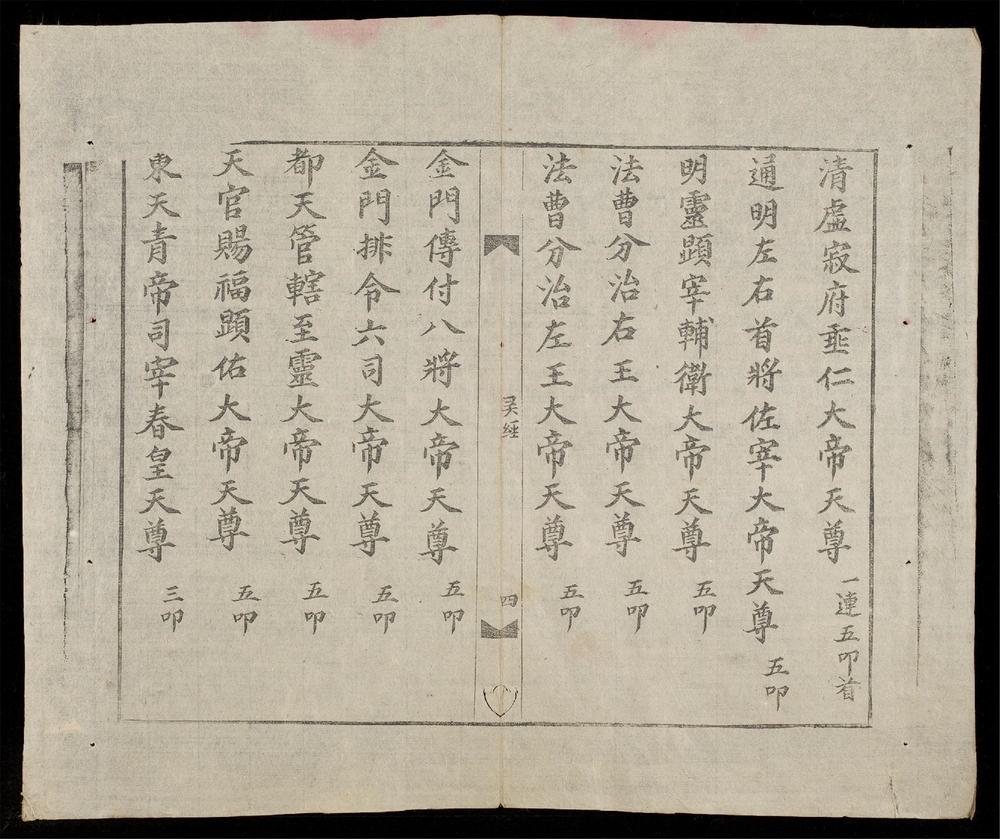 清虛寂府垂仁大帝天尊 一連五叩首
通明左右首將佐宰大帝天尊 五叩
明靈顕宰輔衛大帝天尊 五叩
法曹分治右王大帝天尊 五叩
法曹分治左王大帝天尊 五叩
四
金門傳付八將大帝天尊 五叩
金門排令六司大帝天尊 五叩
都天管轄至靈大帝天尊 五叩
天官賜福顕佑大帝天尊 五叩
東天青帝司宰春皇天尊 三叩